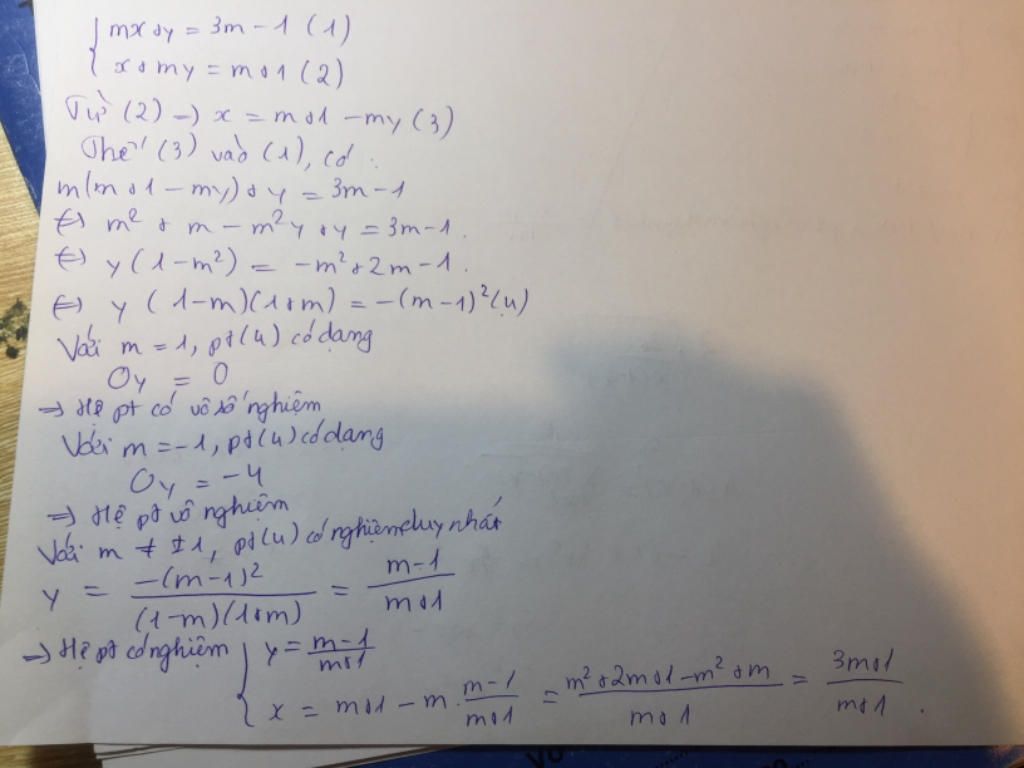 { mx + y = 3m - 1 (1)
x + my = m + 1 (2)
Từ (2) → x = m + 1 - my (3)
Thế (3) vào (1), có :
m(m + 1 - my) + y = 3m - 1
⇔ m² + m - m²y + y = 3m - 1.
⇔ y (1 - m²) = -m² + 2m - 1.
⇔ y (1-m)(1+m) = -(m-1)² (4)
Với m = 1, pt(4) có dạng
0y = 0
⇒ Hệ pt có vô số nghiệm
Với m = -1, pt(4) có dạng
0y = -4
⇒ Hệ pt vô nghiệm
Với m ≠ ±1, pt(4) có nghiệm duy nhất
y = -(m-1)² / (1-m)(1+m) = m-1 / m+1
⇒ Hệ pt có nghiệm { y = m-1 / m+1
x = m+1 - m . m-1 / m+1 = m² + 2m + 1 - m² + m / m+1 = 3m+1 / m+1 .